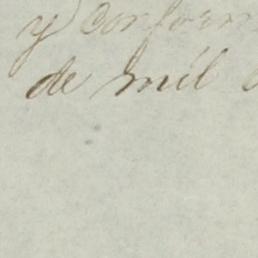 y conform
de mil